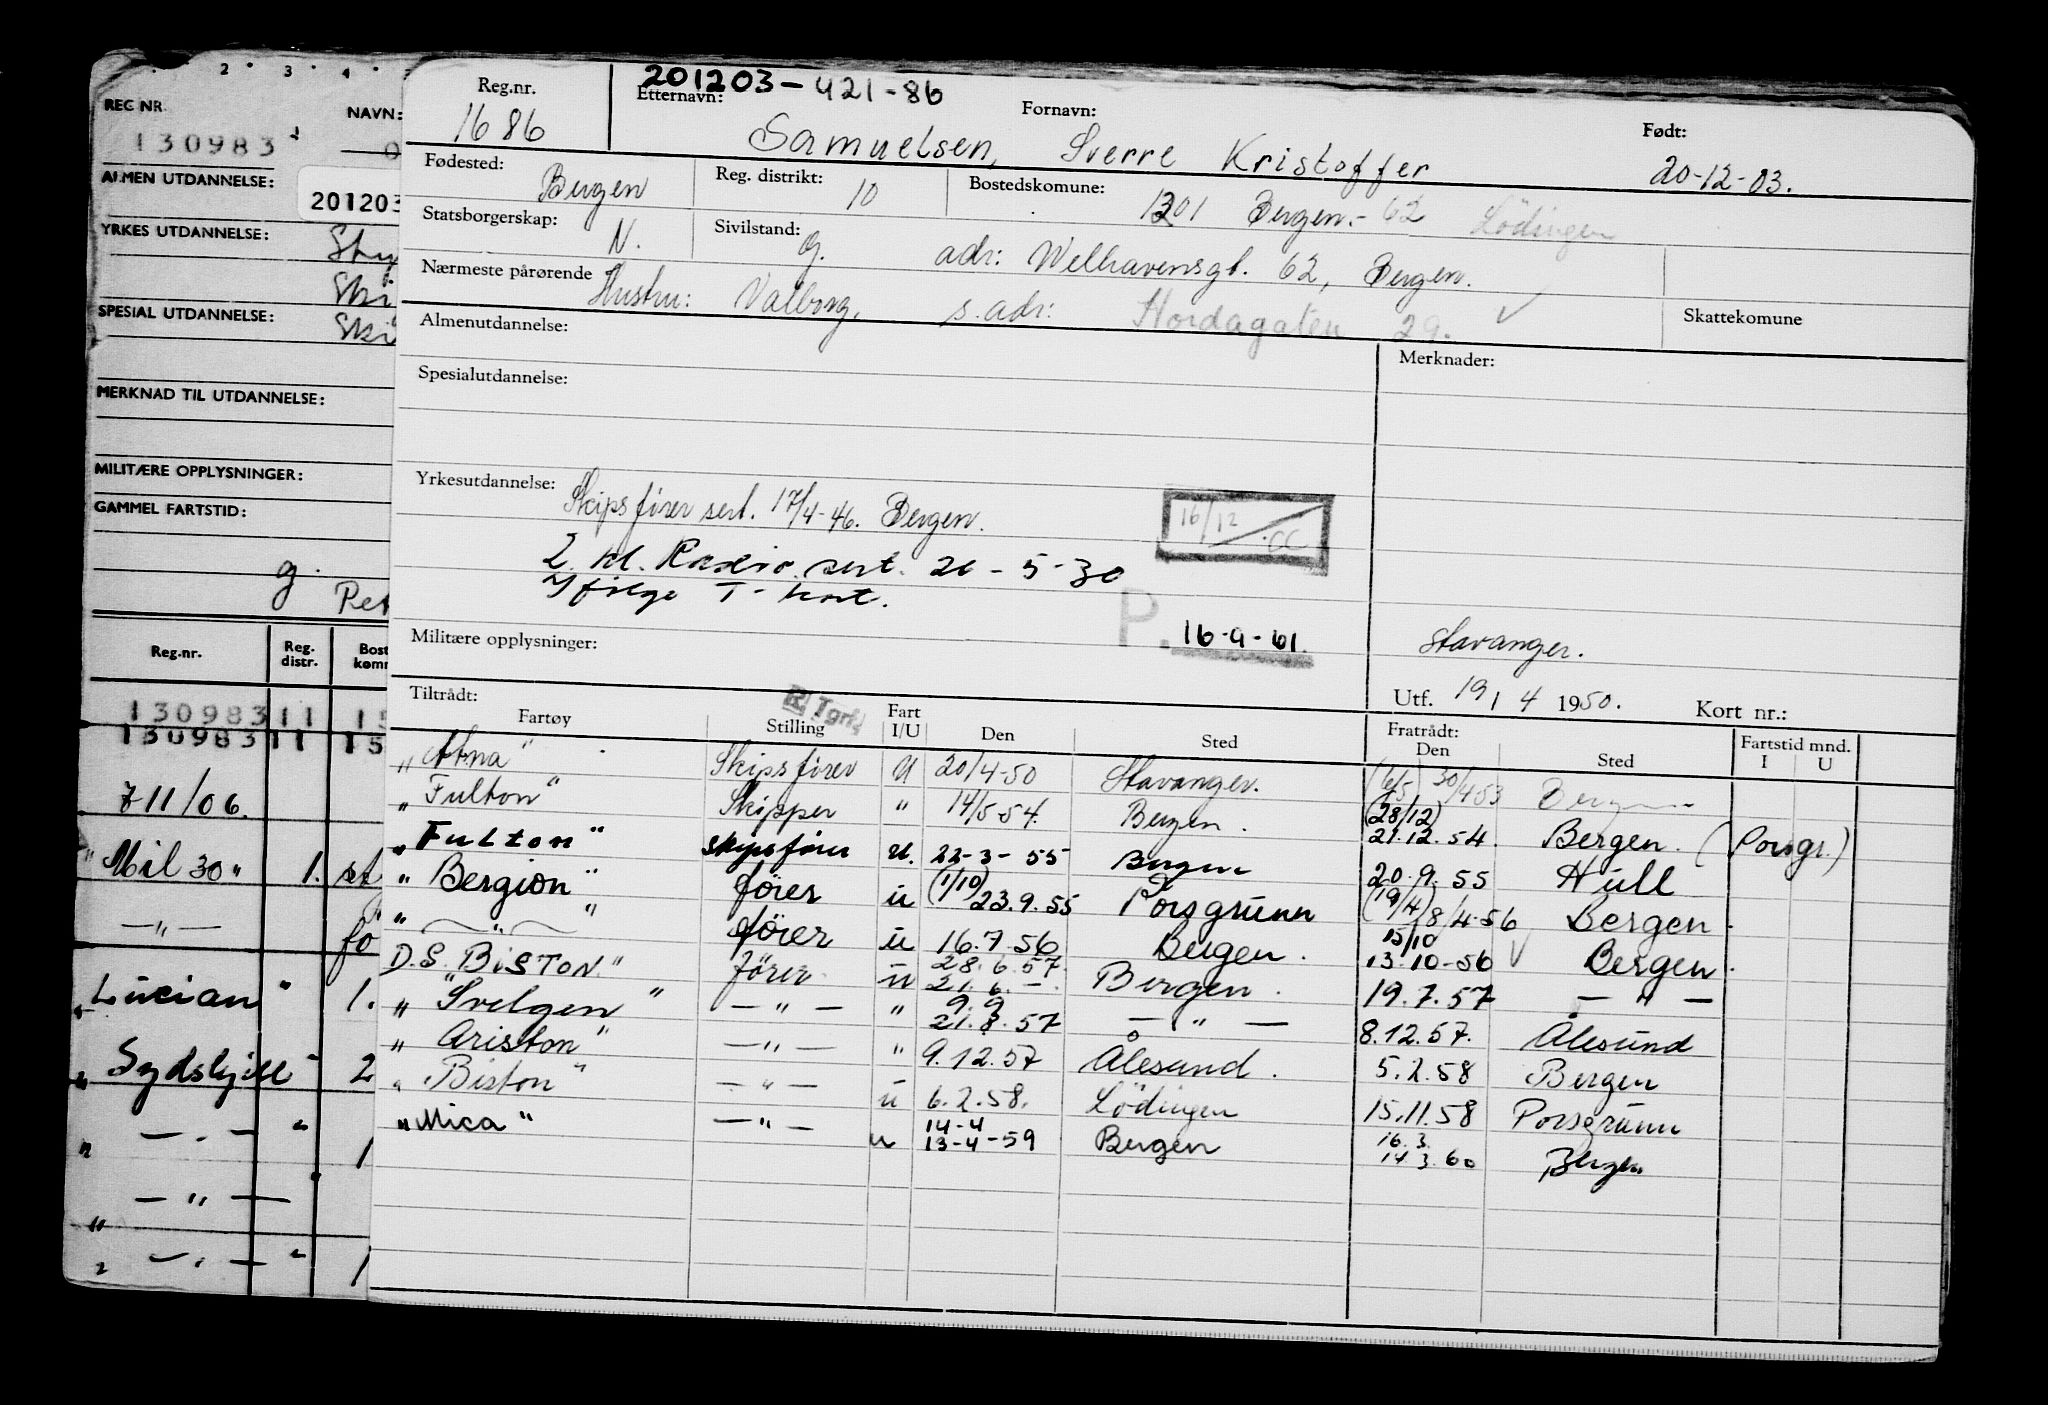 2 3 4
REG NR.
130983
NAVN:
ALMEN UTDANNELSE:
201203
YRKES UTDANNELSE:
SPESIAL UTDANNELSE:
MERKNAD TIL UTDANNELSE:
MILITÆRE OPPLYSNINGER:
GAMMEL FARTSTID:
g.
Reg.nr. Reg. distr. Bost komm
130983 11 15
130983 11 15
711/06.
Mil 30" 1. st
— " — fö
Lucian " 1.
Sydshjell 2
— " — " 1
— " — "
— " — " 1
201203-421-86
Reg.nr. Etternavn: Fornavn: Født:
1686 Samuelsen, Sverre Kristoffer 20-12-03.
Fødested: Bergen Reg. distrikt: 10 Bostedskomune: 1301 Bergen.- 62 Lödingen
Statsborgerskap: N. Sivilstand: g. adr: Welhavensgt. 62, Bergen.
Nærmeste pårørende Hustru: Valborg, s. adr: Hordagaten 29. Skattekomune
Almenutdannelse: Merknader:
Spesialutdannelse:
Yrkesutdannelse: Skipsfører sert. 17/4-46. Bergen.
16/12 CC
2. kl. Radio sert. 26-5-30
Ifølge T-kort.
P. 16-9-61.
Militære opplysninger: Stavanger.
Utf. 19/4 1950. Kort nr.:
Tiltrådt: R. Tgrf. Fratrådt:
Fartøy Stilling Fart I/U Den Sted Den Sted Fartstid mnd. I U
"Atna" Skipsfører U 20/4-50 Stavanger. (16/5) 30/4 53 Bergen
"Fulton" Skipper " 14/5-54. Bergen. (28/12) 21.12.54. Bergen. (Porsgr.)
"Fulton" skipsfører u. 22-3-55 Bergen 20.9.55 Hull
"Bergion" fører u (1/10) 23.9.55 Porsgrunn (19/4) 8/4-56 Bergen.
" — " — " fører u 16.7.56 Bergen. 15/10 13-10-56 Bergen.
D.S. "Biston" fører u 28.6.57. 21.6.-. Bergen. 19.7.57 — " —
"Svelgen" — " — " 9.9 21.8.57 — " — 8.12.57. Ålesund
"Ariston" — " — " 9.12.57 Ålesund. 5.2.58 Bergen
"Biston" — " — u 6.2.58. Lödingen 15.11.58 Porsgrunn
"Mica" — " — u 14-4 13-4-59 Bergen 16.3. 14.3.60 Bergen